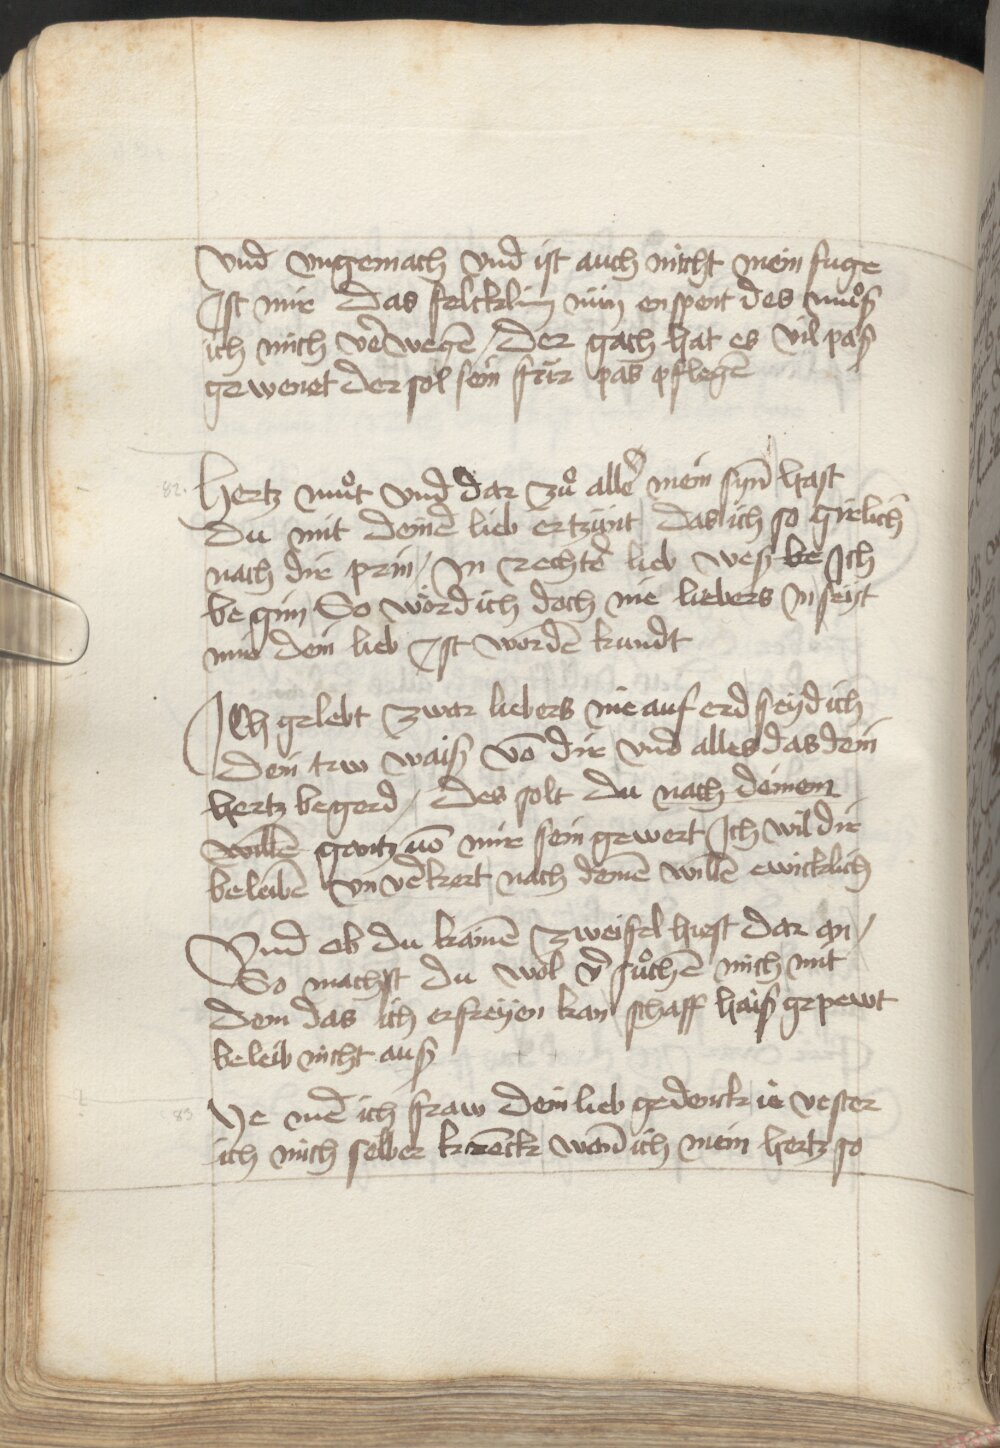 vnd vngemach vnd ist auch nicht mein fuge
Ist mir das felcklin nün enspent des muoß
ich mich v̄wegē / der gach hat es vil paß
gewenet der sol sein für pas pflegē
82. Hertz muot vnd dar zuo allē mein syn̄ hast
du mit deinē lieb ertzünt das ich so girlich
nach dir prin / In rechtē lieb weß be Ich
be gin So würd ich doch nie liebers In seyt
mir dein lieb Ist wordē kundt
Ich gelebt zwar liebers nie auf erd seyd ich
dein trw waiß vō dir vnd alles das dein
hertz begerd / des solt du nach deinem
willē gantz vō mir sein gewert Ich wil dir
beleibē vn v̄kert nach deinē willē ewicklich
Vnd ob du kainē zweifel hiest dar an /
So machst du wol v̄suochē mich mit
dem das ich erfreyen kan schaff haiß gepewt
beleib nicht auß
83 Ye mē ich fraw dein lieb gedenck ie vester
ich mich selber krenck wen̄ ich mein hertz so